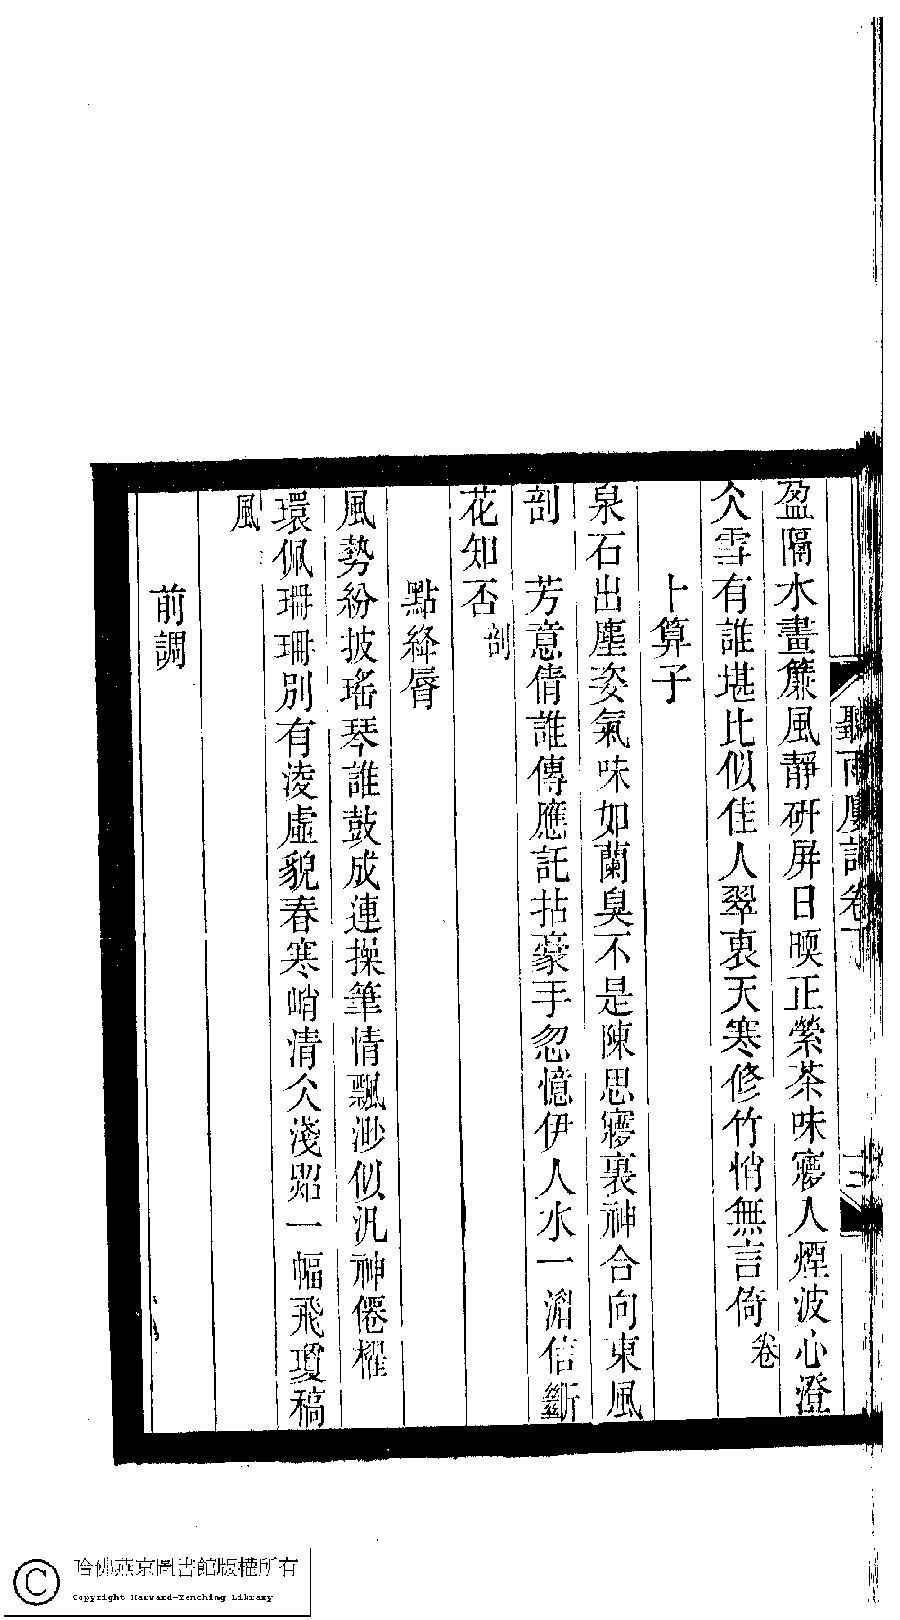 聽雨廔詞卷下
盈隔水畫簾風靜研屏日暎正縈茶味㝱人煙波心澄
仌雪有誰堪比似佳人翠褏天寒修竹悄無言倚卷
卜算子
泉石出塵姿氣味如蘭臭不是陳思㝱裏神合向東風
剖 芳意倩誰傳應託拈豪手忽憶伊人水一湄信斷
花知否剖
點絳脣
風勢紛披瑤琴誰鼓成連操筆情飄渺似汎神僊櫂
環佩珊珊別有淩虛貌春寒峭清仌淺照一幅飛瓊稿
風
前調
哈佛燕京圖書館版權所有
Copyright Harvard-Yenching Library